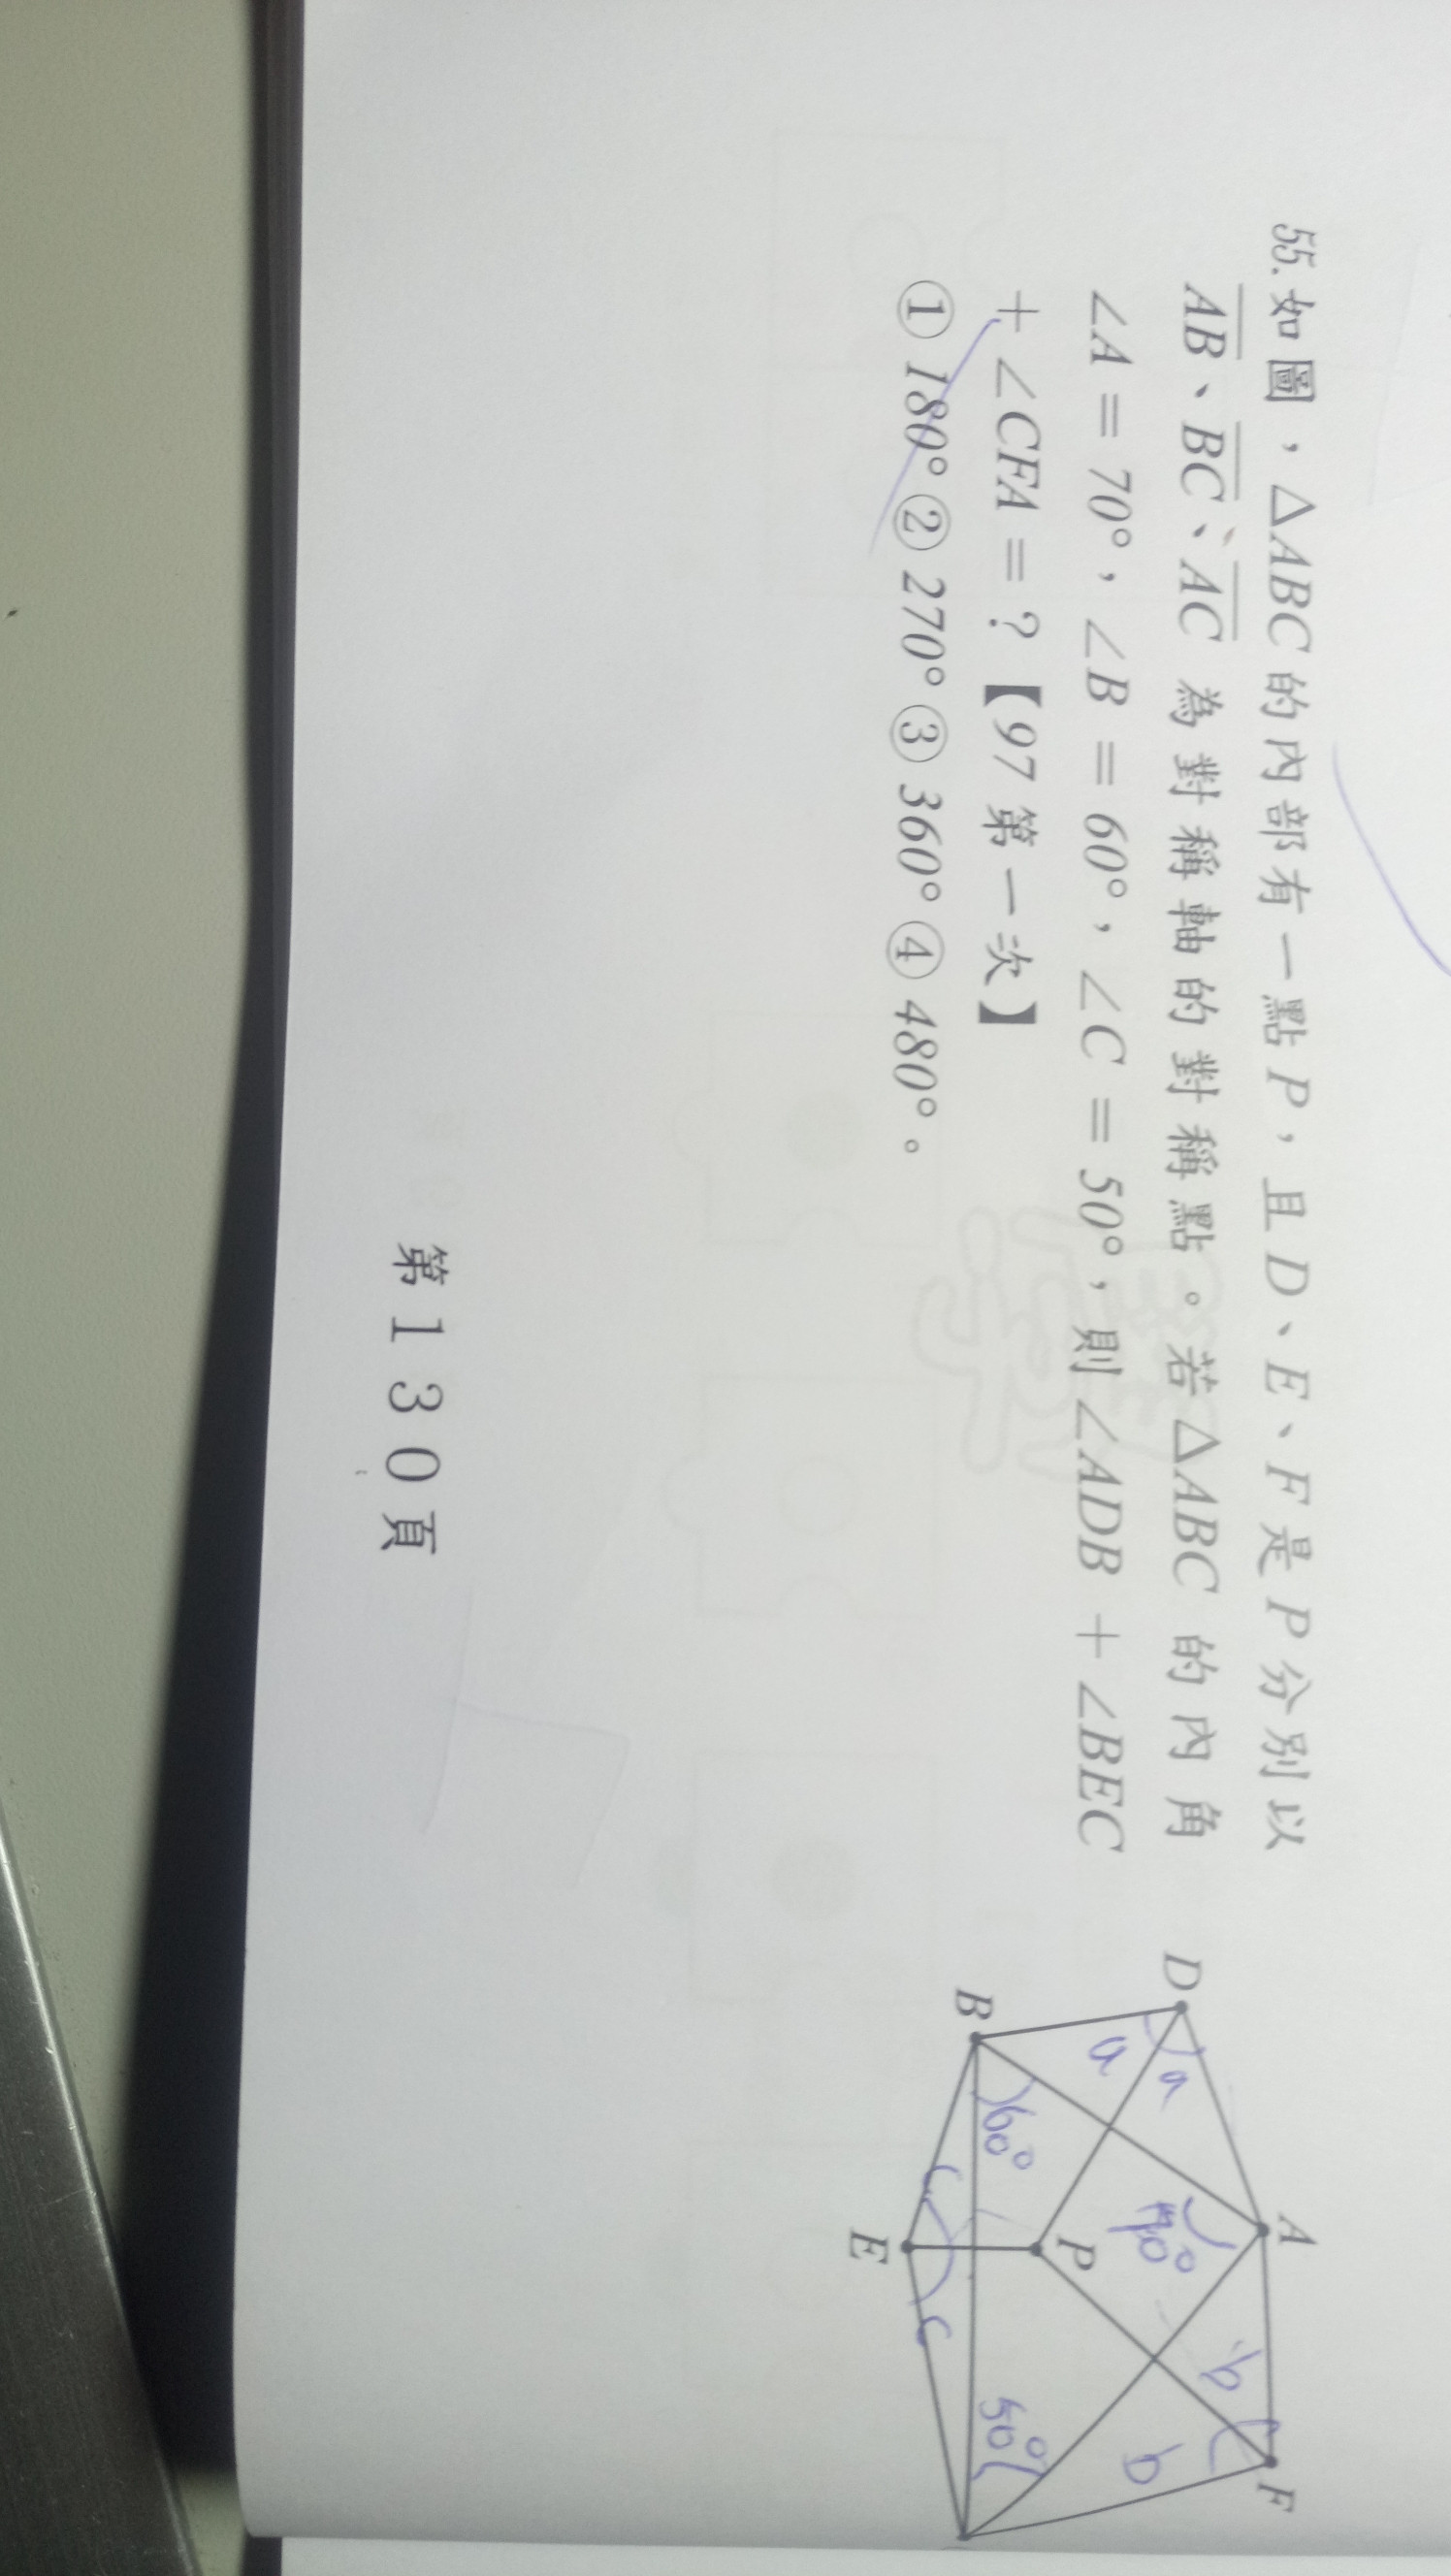 55.如圖，△ABC的內部有一點P，且D、E、F是P分別以
AB、BC、AC為對稱軸的對稱點。若△ABC的內角
∠A＝70°，∠B＝60°，∠C＝50°，則∠ADB＋∠BEC
＋∠CFA＝？【97第一次】
①180°②270°③360°④480°。
A
D
F
P
B
E
a
a
b
b
c
c
70°
60°
50°
第130頁